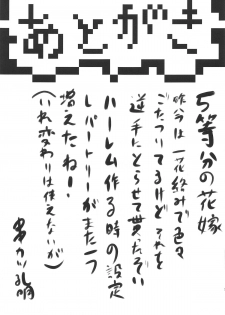 あとがき
5等分の花嫁
昨今は一花絡みで色々
ごたついてるけど それを
逆手にとらせて貰ったぞい
ハーレム作る時の設定
レパートリーがまた一つ
増えたねー!
(いね変わりは使えないが)